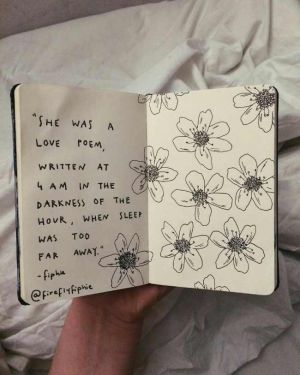 "SHE WAS A
LOVE POEM,
WRITTEN AT
4 AM IN THE
DARKNESS OF THE
HOUR, WHEN SLEEP
WAS TOO
FAR AWAY."
- fiphie
@fireflyfiphie